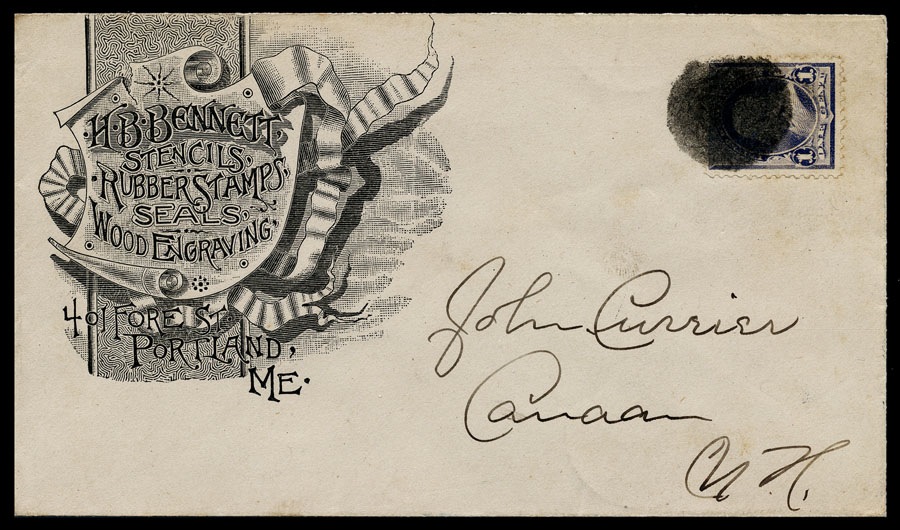 ·H·B·BENNETT·
STENCILS,
·RUBBER STAMPS,
SEALS,
WOOD ENGRAVING,
401 FORE ST.
PORTLAND,
ME.
1 1
John Currier
Canaan
N. H.